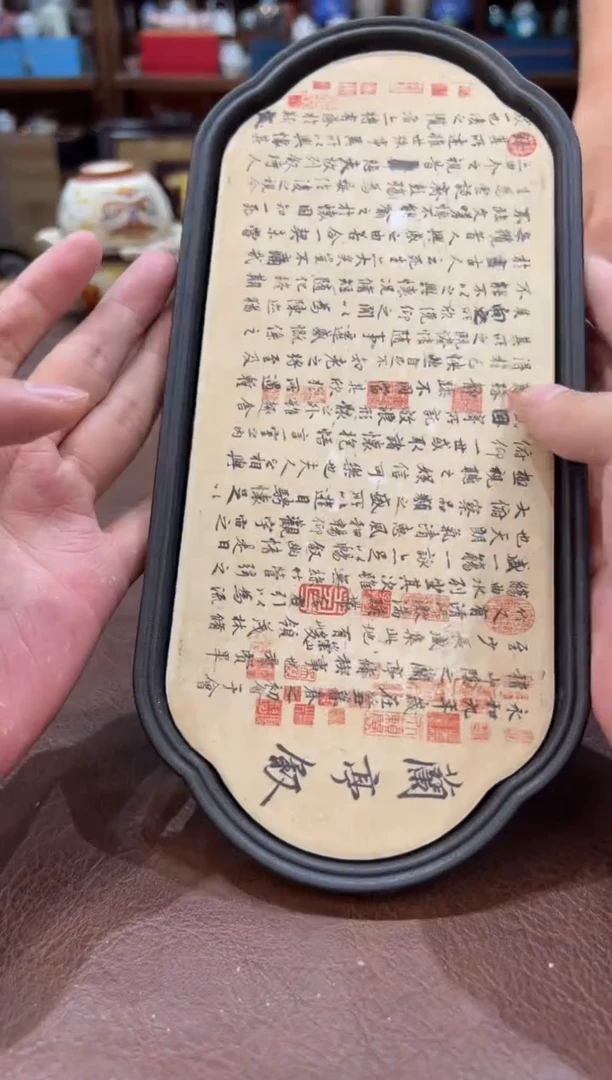 蘭亭叙
永和九年歲在癸丑暮春之初會于會
稽山陰之蘭亭脩稧事也群賢畢
至少長咸集此地有崇山峻領茂林脩
竹又有清流激湍暎帶左右引以為流
觴曲水列坐其次雖無絲竹管弦之
盛一觴一詠亦足以暢叙幽情是日
也天朗氣清惠風和暢仰觀宇宙之
大俯察品類之盛所以遊目騁懷足以
極視聽之娛信可樂也夫人之相與
俯仰一世或取諸懷抱悟言一室之內
因寄所託放浪形骸之外雖趣舍
萬殊靜躁不同當其欣於所遇暫
得於己怏然自足不知老之將至及
其所之既惓情隨事遷感慨係之
矣向之所欣俛仰之閒以為陳迹猶
不能不以之興懷況脩短隨化終期
於盡古人云死生亦大矣豈不痛哉
每攬昔人興感之由若合一契未嘗
不臨文嗟悼不能喻之於懷固知一死
生為虛誕齊彭殤為妄作後之視今
亦由今之視昔悲夫故列叙時人
錄其所述雖世殊事異所以興懷其
致一也後之攬者亦將有感於斯文